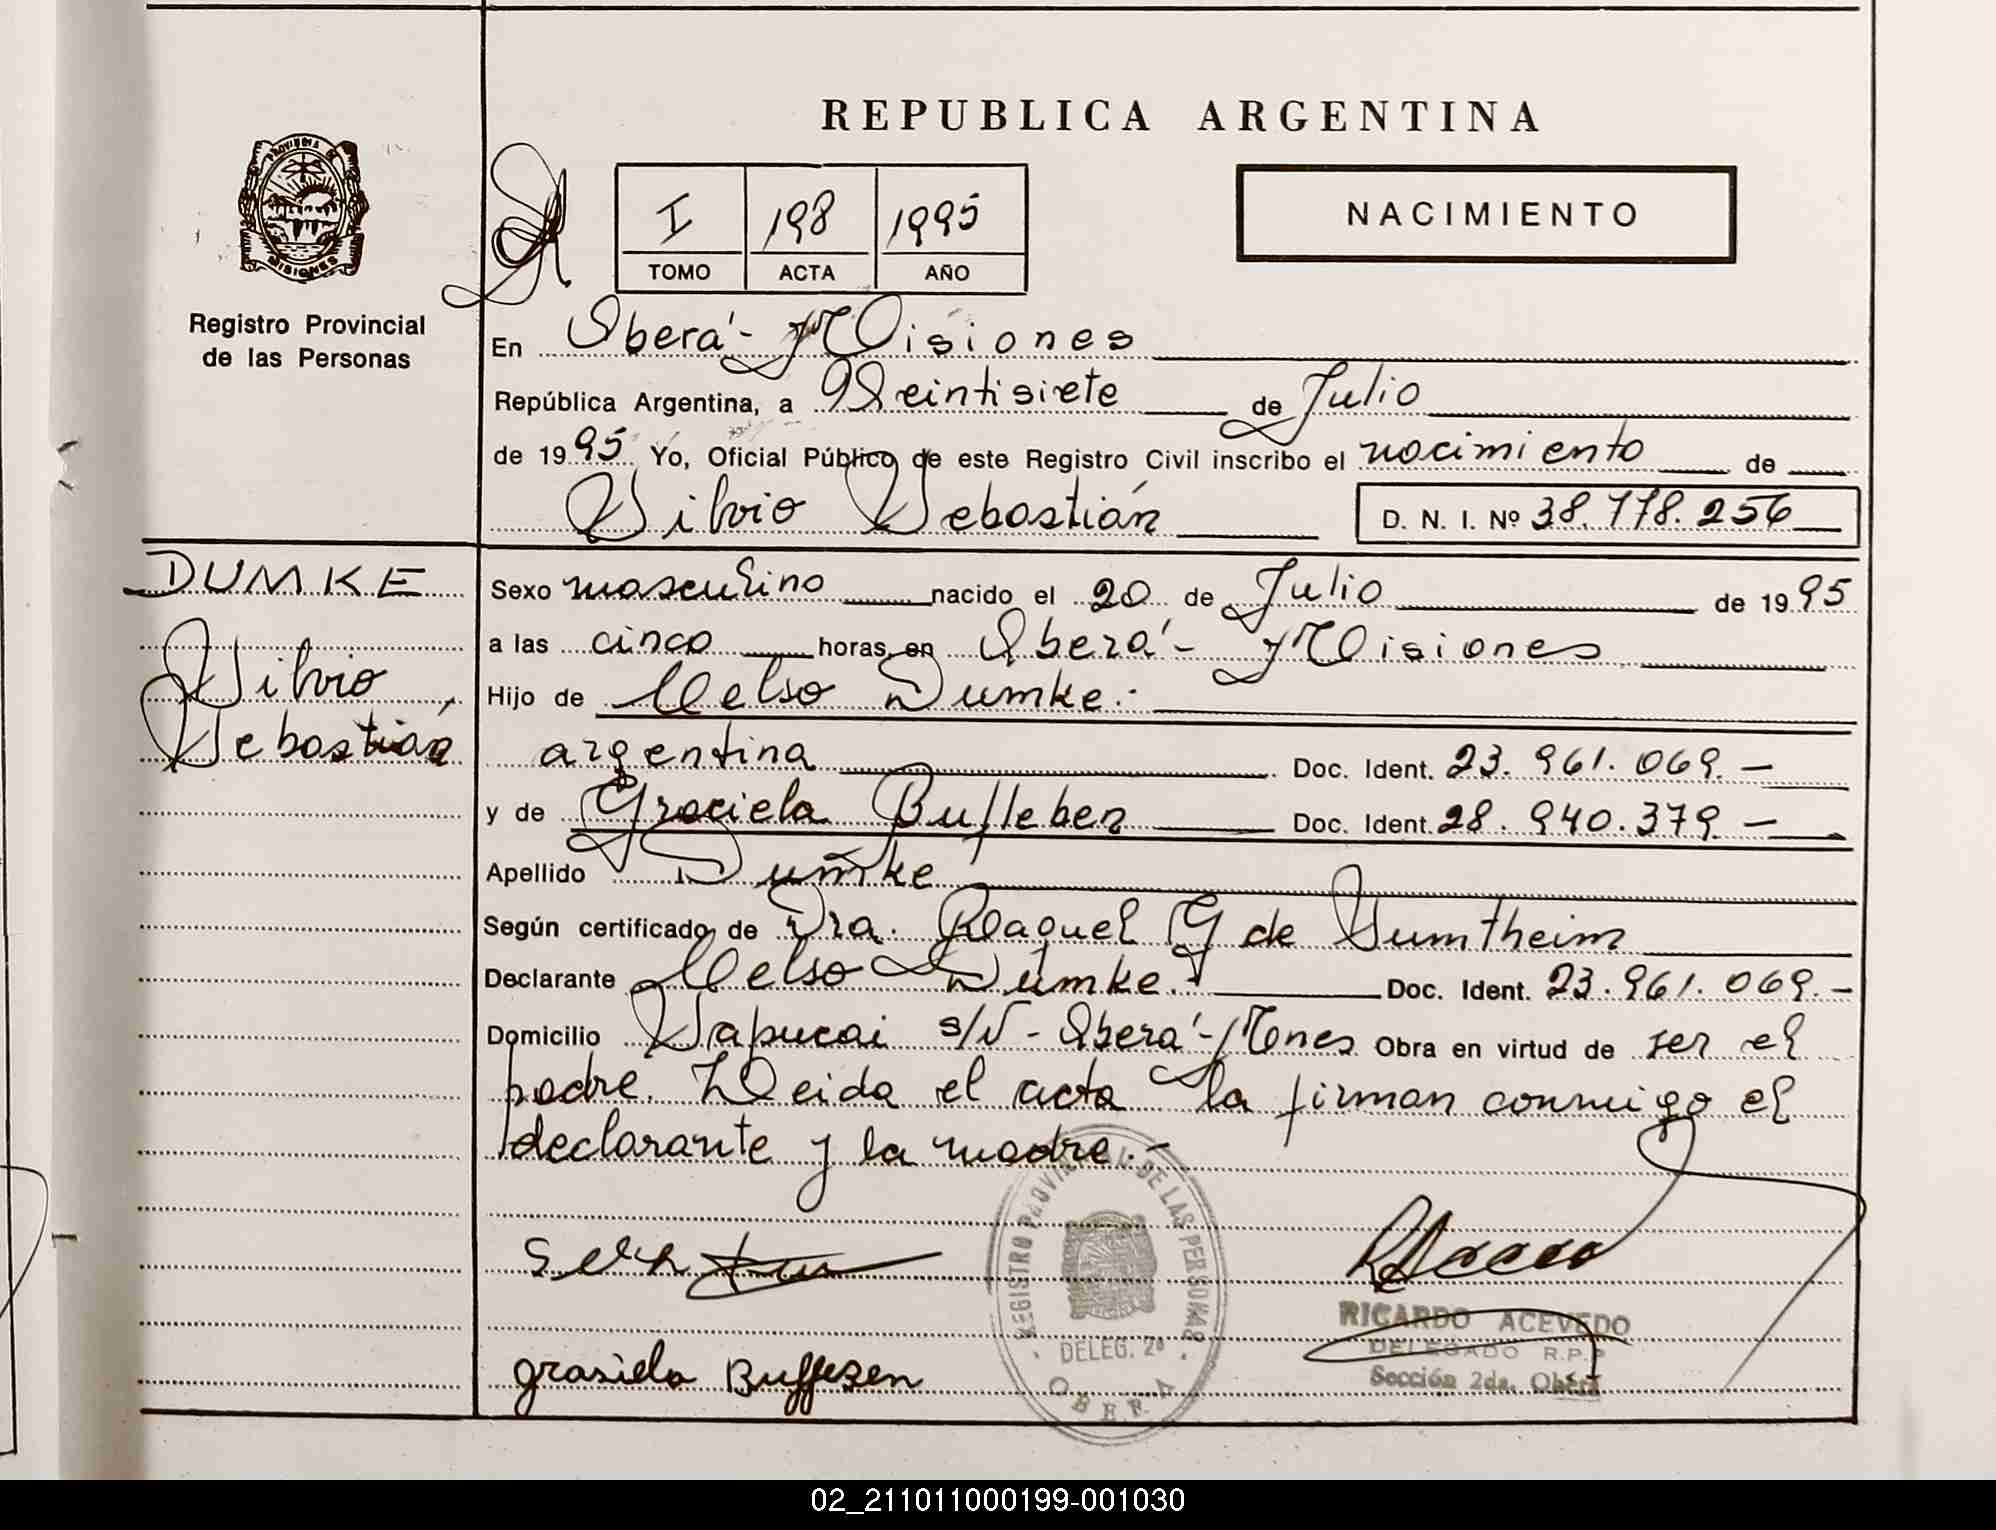 REPUBLICA ARGENTINA
PROVINCIA DE
MISIONES
Registro Provincial
de las Personas
I 198 1995
TOMO ACTA AÑO
NACIMIENTO
En Oberá - Misiones
República Argentina, a Veintisiete de Julio
de 1995 Yo, Oficial Público de este Registro Civil inscribo el nacimiento de
Silvio Sebastián D. N. I. Nº 38.778.256
DUMKE
Silvio
Sebastián
Sexo masculino nacido el 20 de Julio de 1995
a las cinco horas, en Oberá - Misiones
Hijo de Celso Dumke.
argentina Doc. Ident. 23.961.069.-
y de Graciela Bufleben Doc. Ident. 28.940.379.-
Apellido Dumke
Según certificado de Dra. Raquel G de Sumtheim
Declarante Celso Dumke. Doc. Ident. 23.961.069.-
Domicilio Sapucai s/N - Oberá - Mnes Obra en virtud de ser el
padre. Leida el acta la firman conmigo el
declarante y la madre.-
REGISTRO PROVINCIAL DE LAS PERSONAS
DELEG. 2ª
OBERA
RICARDO ACEVEDO
DELEGADO R.P.P
Sección 2da. Oberá
grasiela
02_211011000199-001030